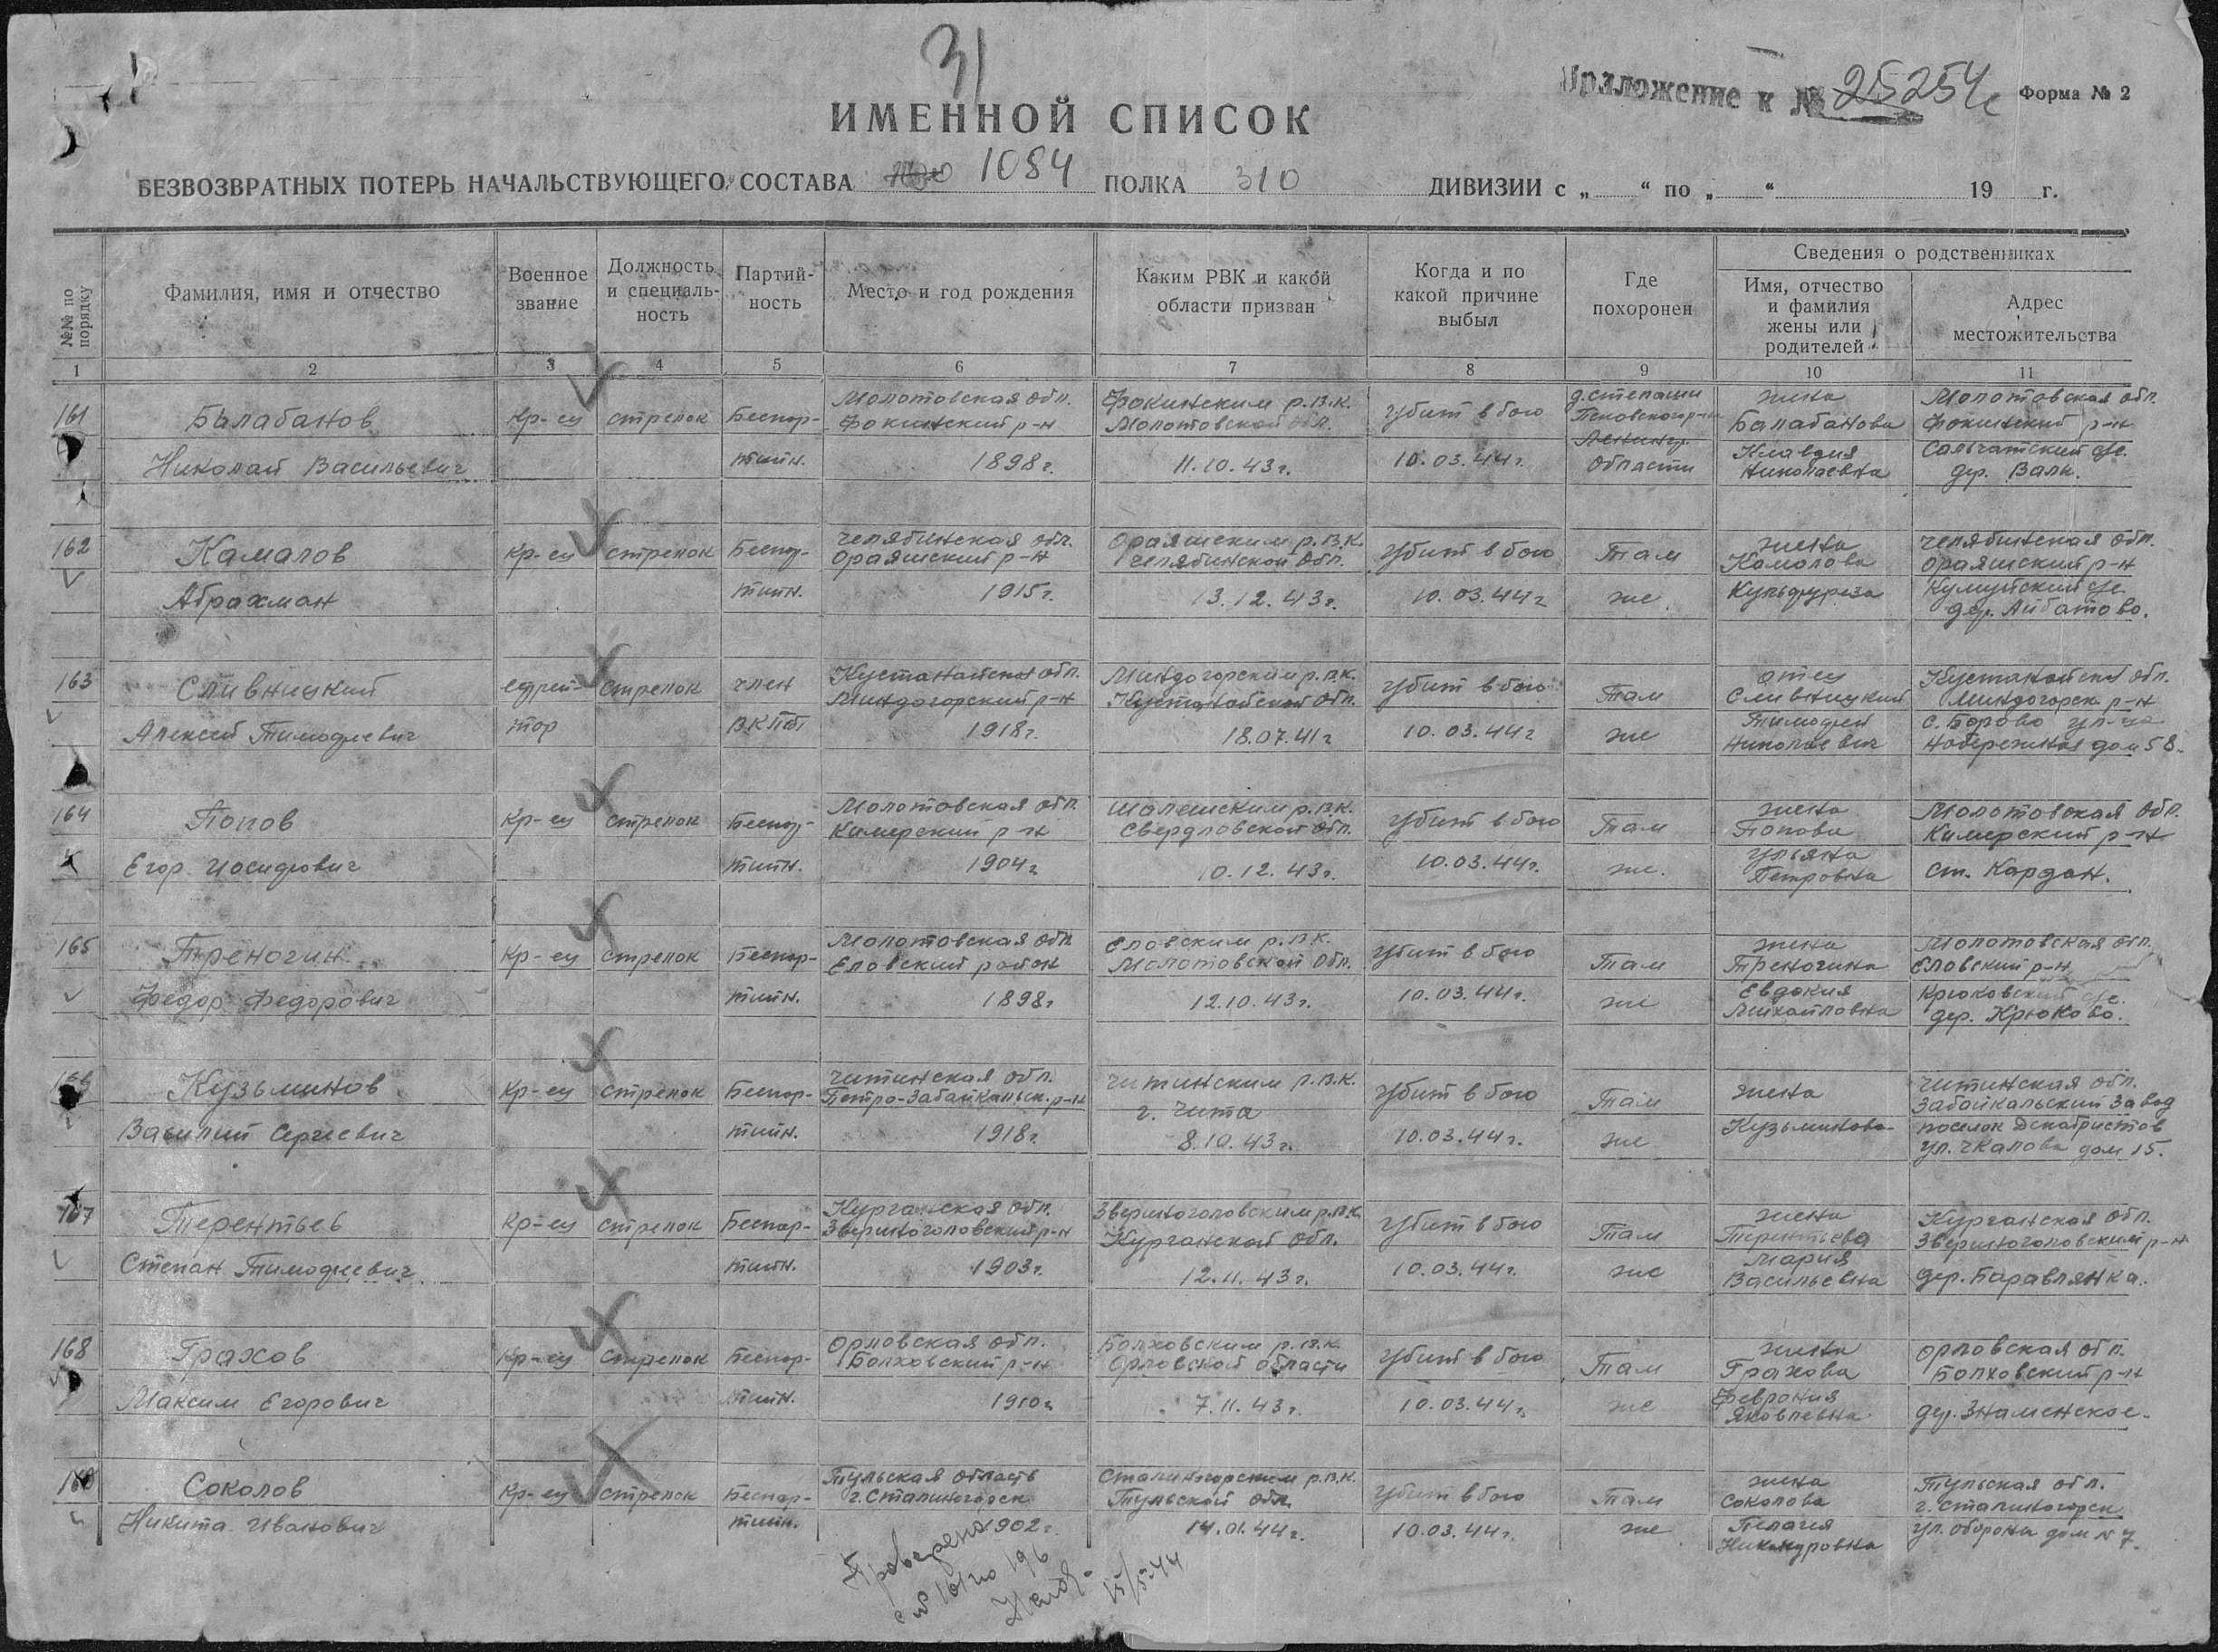 31
Приложение к № 25254с Форма № 2
ИМЕННОЙ СПИСОК
БЕЗВОЗВРАТНЫХ ПОТЕРЬ НАЧАЛЬСТВУЮЩЕГО СОСТАВА 1084 ПОЛКА 310 ДИВИЗИИ с „ “ по „ “ 19 г.
№№ по порядку
Фамилия, имя и отчество
Военное звание
Должность и специаль-ность
Партий-ность
Место и год рождения
Каким РВК и какой области призван
Когда и по какой причине выбыл
Где похоронен
Сведения о родственниках
Имя, отчество и фамилия жены или родителей
Адрес местожительства
1 2 3 4 5 6 7 8 9 10 11
161 Балабанов кр-ец стрелок Беспар- Молотовская обл. Фокинский р-н Фокинским р.в.к. Молотовской обл. убит в бою д. Степаши Псковского р-на жена Балабанова Молотовская обл. Фокинский р-н
Николай Васильевич тийн. 1898 г. 11.10.43 г. 10.03.44 г. Ленингр. области Клавдия Николаевна Сальчатский с/с. дер. Валк.
162 Камалов кр-ец стрелок Беспар- Челябинская обл. Ораяшский р-н Ораяшским р.в.к. Челябинской обл. убит в бою Там жена Камалова Челябинская обл. Ораяшский р-н
Абрахман тийн. 1915 г. 13.12.43 г. 10.03.44 г же. Кумуйский с/с. дер. Айбатово.
163 Сливницкий ефрей- стрелок член Кустанайская обл. Миндогорский р-н Миндогорским р.в.к. Кустанайской обл. убит в бою Там отец Сливницкий Кустанайская обл. Миндогорск. р-н
Алексей Тимофеевич тор ВКПб 1918 г. 18.07.41 г 10.03.44 г же Тимофей Николаевич с. Борово ул-ца Набережная дом 58.
164 Попов кр-ец стрелок Беспар- Молотовская обл. Кишерский р-н Шалешским р.в.к. Свердловской обл. убит в бою Там жена Попова Молотовская обл. Кишерский р-н
Егор Иосифович тийн. 1904 г 10.12.43 г. 10.03.44 г. же. Ульяна Петровна ст. Кордон.
165 Треногин кр-ец стрелок Беспар- Молотовская обл Еловский район Еловским р.в.к. Молотовской обл. убит в бою Там жена Треногина Молотовская обл. Еловский р-н
Федор Федорович тийн. 1898 г 12.10.43 г. 10.03.44 г. же Евдокия Михайловна Крюковский с/с. дер. Крюково.
166 Кузьминов кр-ец стрелок Беспар- Читинская обл. Петро-Забайкальск. р-н Читинским р.в.к. г. Чита убит в бою Там жена Читинская обл. Забайкальский завод
Василий Сергеевич тийн. 1918 г. 8.10.43 г. 10.03.44 г. же Кузьминова поселок Декабристов ул. Чкалова дом 15.
167 Терентьев кр-ец стрелок Беспар- Курганская обл. Звериноголовский р-н Звериноголовским р.в.к. Курганской обл. убит в бою Там жена Терентьева Курганская обл. Звериноголовский р-н
Степан Тимофеевич тийн. 1903 г. 12.11.43 г. 10.03.44 г. же Мария Васильевна дер. Баравлянка.
168 Грахов кр-ец стрелок Беспар- Орловская обл. Болховский р-н Болховским р.в.к. Орловской области убит в бою Там жена Грахова Орловская обл. Болховский р-н
Максим Егорович тийн. 1910 г 7.11.43 г. 10.03.44 г. же Феврония Яковлевна дер. Знаменское.
169 Соколов кр-ец стрелок Беспар- Тульская область г. Сталиногорск Сталиногорским р.в.к. Тульской обл. убит в бою Там жена Соколова Тульская обл. г. Сталиногорск
Никита Иванович тийн. 1902 г. 14.01.44 г. 10.03.44 г. же Пелагея Никандровна ул. обороны дом № 7.
Проверено
с № 161 по 196
15/5-44